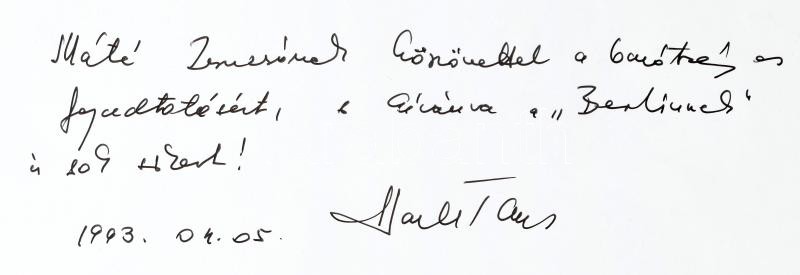 Máté Zenészének köszönettel a baráti és
fogadtatásért, s kívánva a „Berlinnek"
is sok sikert!
1993. 04. 05.